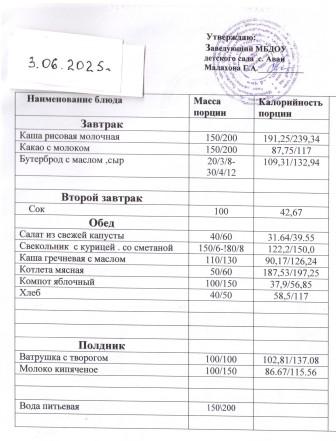 Утверждаю:
Заведующий МБДОУ
детского сада с. Аван
Малахова Е.А.
3.06.2025г
Наименование блюда Масса порции Калорийность порции
Завтрак
Каша рисовая молочная 150/200 191,25/239,34
Какао с молоком 150/200 87,75/117
Бутерброд с маслом ,сыр 20/3/8-30/4/12 109,31/132,94
Второй завтрак
Сок 100 42,67
Обед
Салат из свежей капусты 40/60 31.64/39.55
Свекольник с курицей . со сметаной 150/6-!80/8 122,2/150,0
Каша гречневая с маслом 110/130 90,17/126,24
Котлета мясная 50/60 187,53/197,25
Компот яблочный 100/150 37,9/56,85
Хлеб 40/50 58,5/117
Полдник
Ватрушка с творогом 100/100 102,81/137.08
Молоко кипяченое 100/150 86.67/115.56
Вода питьевая 150\200